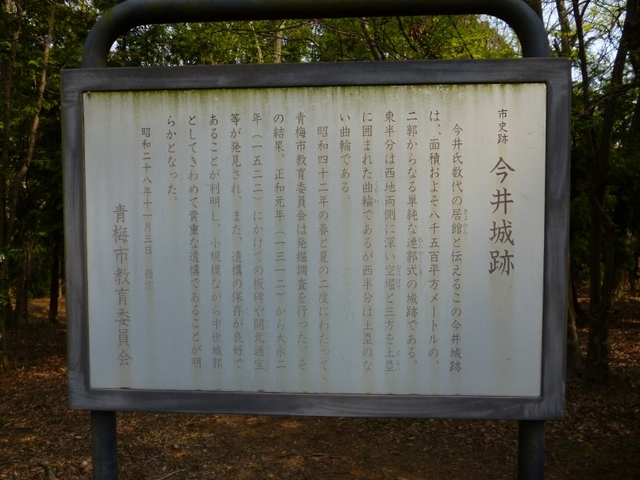 市史跡 今井城跡
今井氏数代の居館と伝えるこの今井城跡
は、面積およそ八千五百平方メートルの、
二郭からなる単純な連郭式の城跡である。
東半分は西地両側に深い空堀と三方を土塁
に囲まれた曲輪であるが西半分は土塁のな
い曲輪である。
昭和四十二年の春と夏の二度にわたって、
青梅市教育委員会は発掘調査を行った。そ
の結果、正和元年(一三一二)から大永二
年(一五二二)にかけての板碑や開元通宝
等が発見され、また、遺構の保存が良好で
あることが判明し、小規模ながら中世城郭
としてきわめて貴重な遺構であることが明
らかとなった。
昭和二十八年十一月三日 指定
青梅市教育委員会